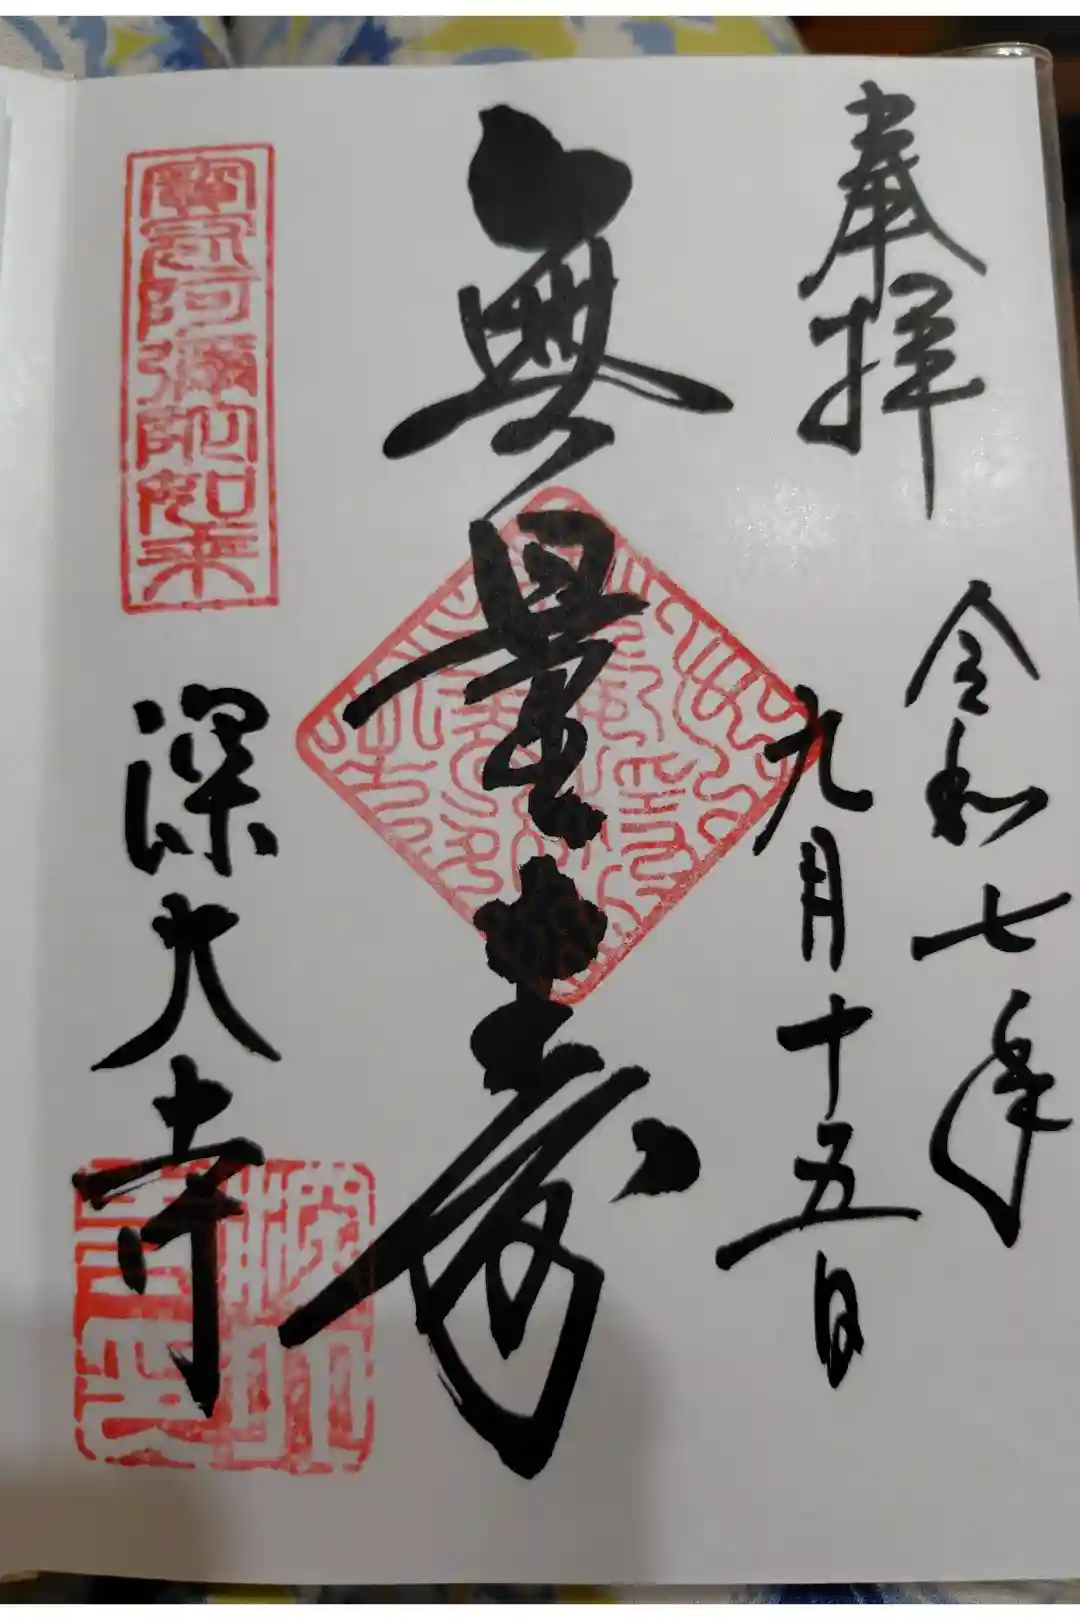 奉拝
令和七年
九月十五日
無量寿
寳冠阿彌陀如来
深大寺